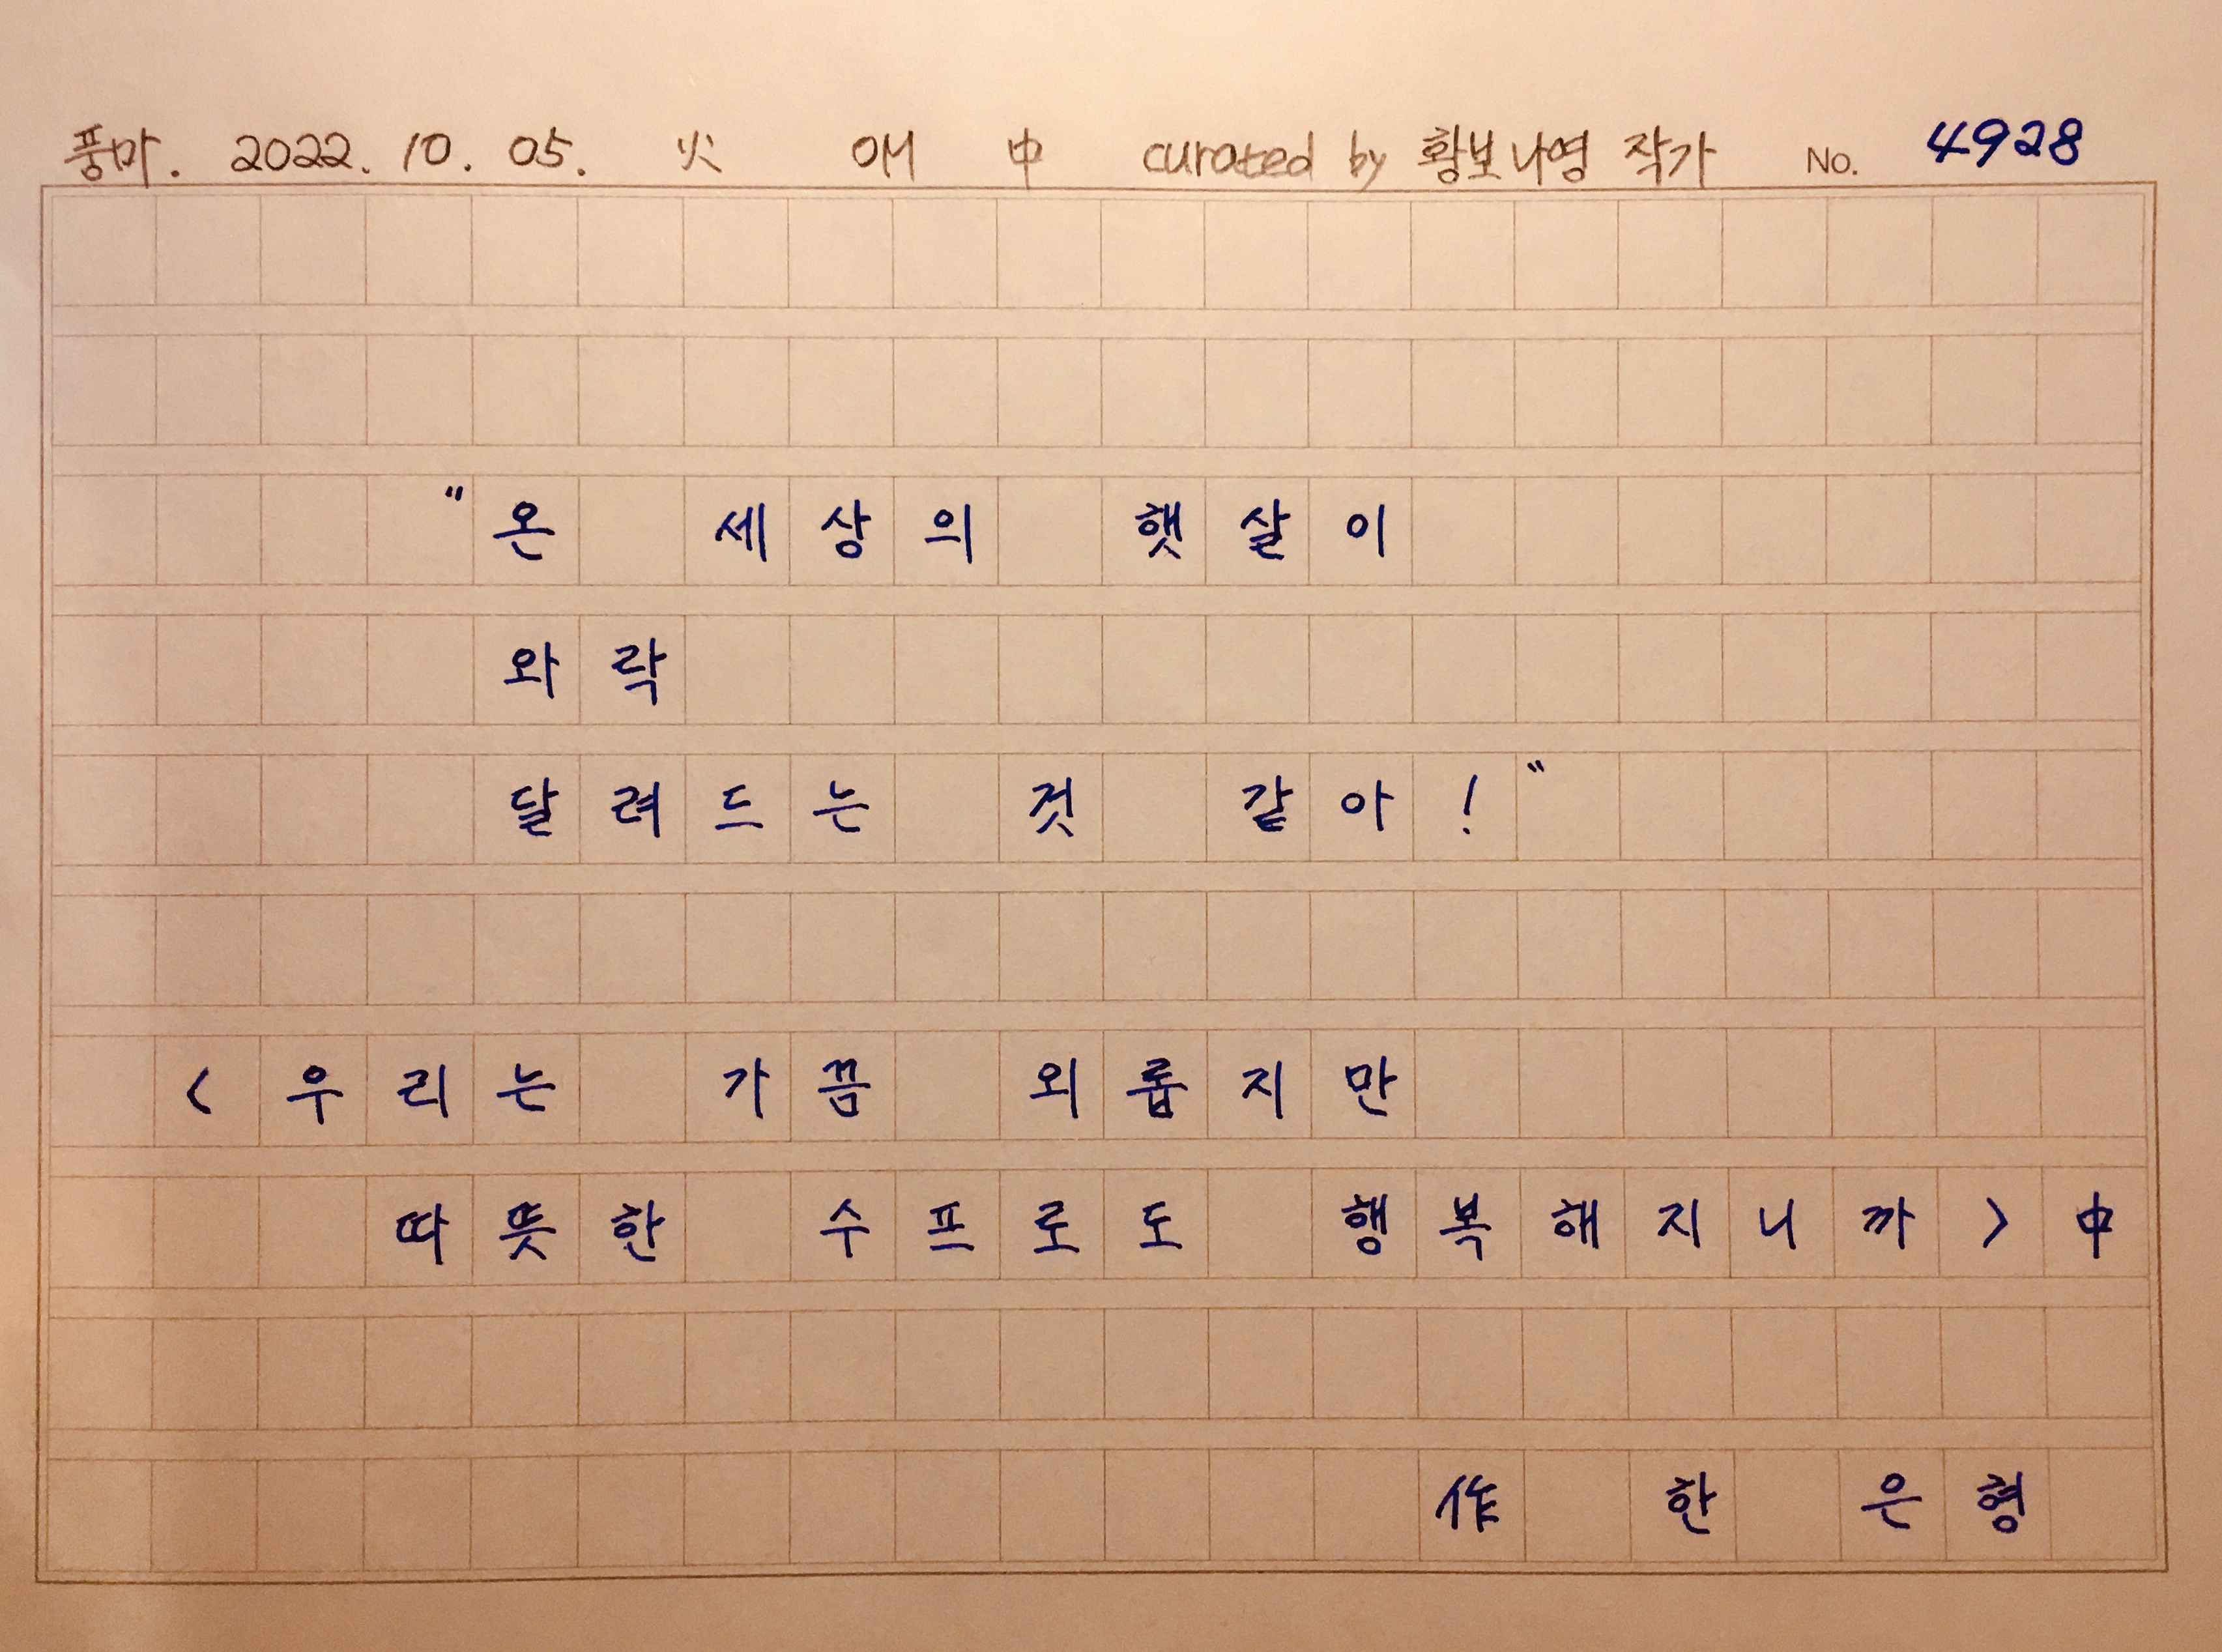 풍마. 2022. 10. 05. 火 애 中 curated by 황보나영 작가 No. 4928
"온 세상의 햇살이
와락
달려드는 것 같아!"
<우리는 가끔 외롭지만
따뜻한 수프로도 행복해지니까> 中
作 한 은형